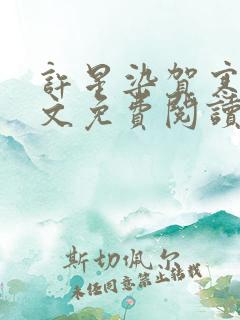 許星染賀寒
文免費閱讀
斯切佩尔
未经同意禁止转载